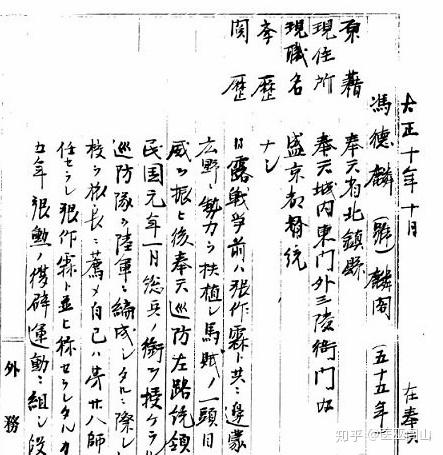 大正十年十月 在奉天
馮德麟 (號)麟閣 五十五年
原籍 奉天省北鎮縣
現住所 奉天城内東門外三陵衙門内
現職名 盛京都督統
学歴 ナシ
閲歴
日露戦争前ハ張作霖ト共ニ遼蒙
広野ニ勢力ヲ扶植シ馬賊ノ一頭目
威ヲ振ヒ後奉天巡防左路統領
民国元年一月総兵ノ銜ヲ授ケラル
巡防隊ヲ陸軍ニ編成シタルニ際シ
校ヲ旅長ニ薦メ自己ハ第廿八師
任セラレ張作霖ト並ヒ称セラレタルカ
五年張勲ノ復辟運動ニ組シ
外務
知乎 @医巫闾山